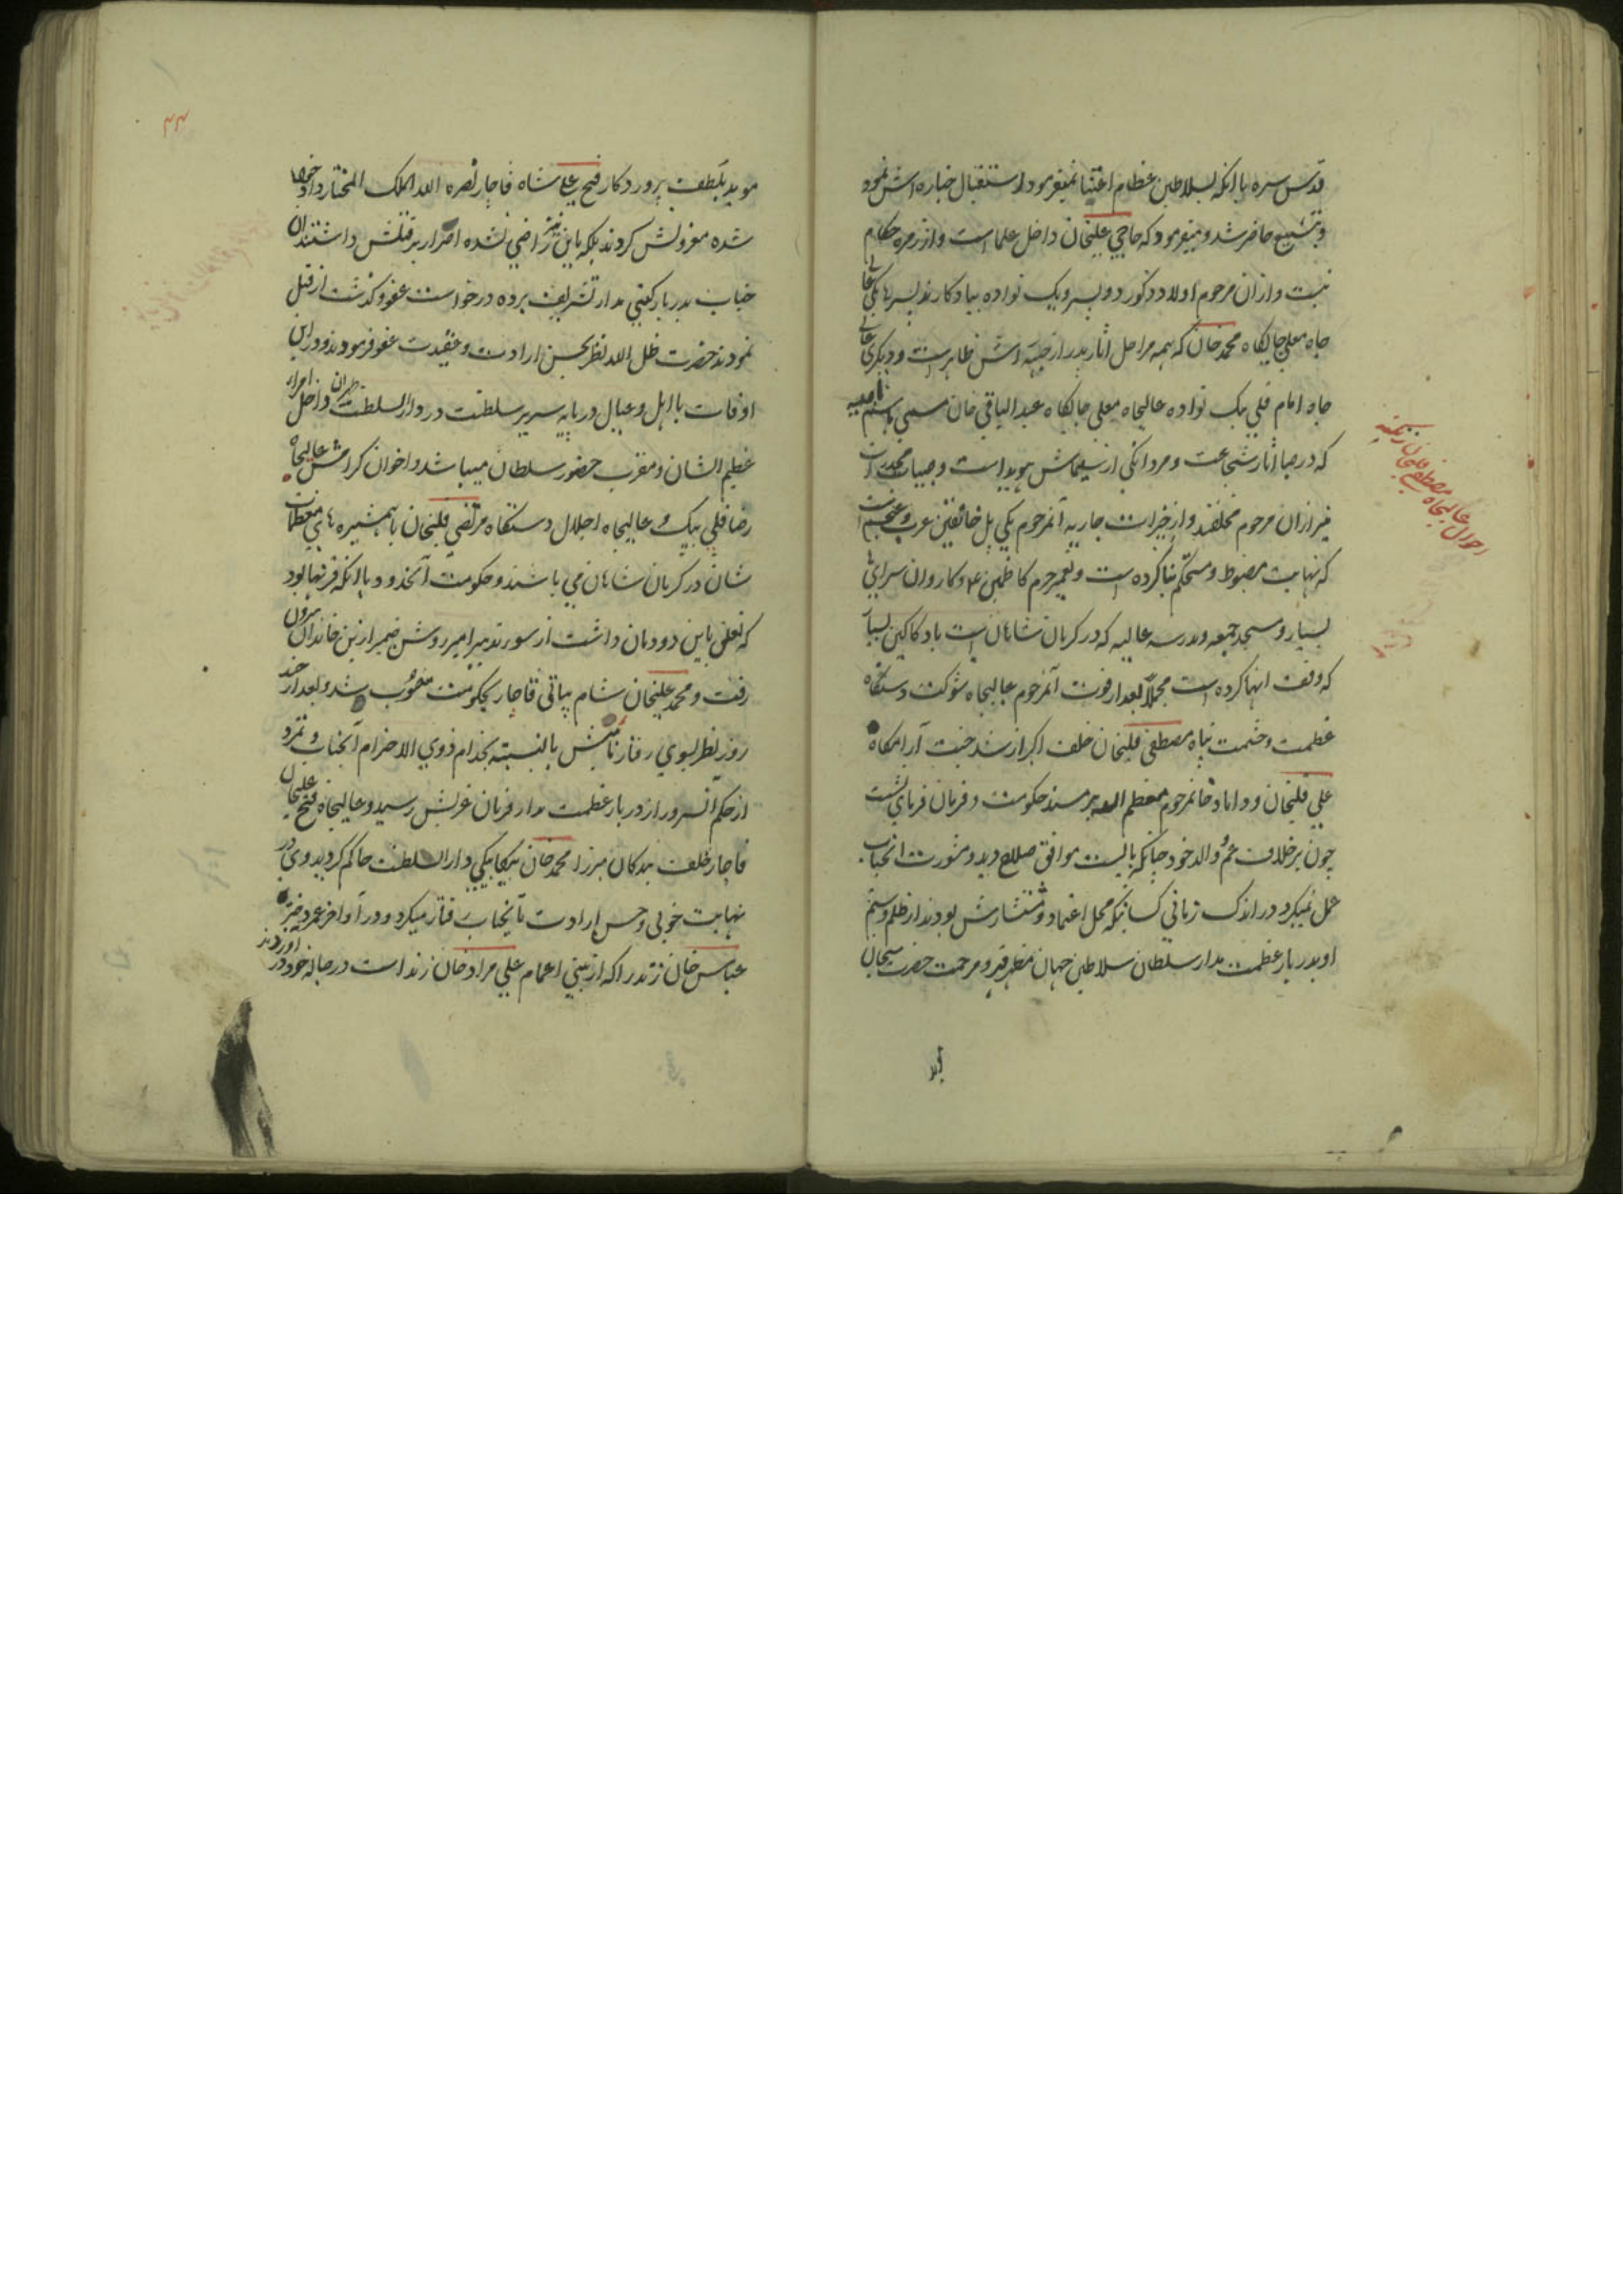 قدس سره با انکه بسلاطین عظام اعتنا نمیفرمود استقبال جنازه اش نمود
و بتشییع حاضر شد و میفرمود که حاجی علیخان داخل علما است و از زمره حکام
نیست و از ان مرحوم اولاد ذکور دو پسر و یک نواده بیادکارند پسرها یکی عالی
جاه معلی جایکاه محمد خان که همه مراحل اثار پدر از جبهه اش ظاهر است و دیکری عالی
جاه امام قلی بیک نواده عالیجاه معلی جایکاه عبد الباقی خان مسمی باسم
که در صبا اثار شجاعت و مردانکی از سیماش هویدا است و صبیات مخدرات
نیز از ان مرحوم مخلفند و از خیرات جاریه آنمرحوم یکی پل خانقین عرب و عجم است
که نهایت مضبوط و مستحکم بنا کرده است و تعمیر حرم کاظمین ع و کاروان سرای ها
بسیار و مسجد جمعه و مدرسه عالیه که در کرمان شاهان است با دکاکین بسیار
که وقف انها کرده است مجملا بعد از فوت آنمرحوم عالیجاه شوکت دستکاه
عظمت و حشمت پناه مصطفی قلیخان خلف اکبر ارشد جنت آرامکاه
علی قلیخان و داماد خانمرحوم معظم الیه بر مسند حکومت و فرمان فرمای نشست
چون برخلاف عم و والد خود چنانکه بایست موافق صلاح دید و مشورت انجناب
عمل نمیکرد در اندک زمانی کسانیکه محل اعتماد و مستشارش بودند از ظلم و ستم
او بدربار عظمت مدار سلطان سلاطین جهان مظهر قهر و مرحمت حضرت سبحان
احوال عالیجاه مصطفی قلیخان زنکنه
۴۴
موید بلطف پروردکار فتح علی شاه قاجار نصره الله الملک المختار داد خواه
شده معزولش کردند بلکه باین نیز راضی نشده اصرار بر قتلش داشتند ان
جناب بدربار کیتی مدار تشریف برده درخواست عفو و کذشت از قتل
نمودند حضرت ظل الله نظر بحسن ارادت و عقیدت عفو فرمودند و در این
اوقات با اهل و عیال در پایه سریر سلطنت در دار السلطنت طهران داخل امراء
عظیم الشان و مقرب حضور سلطان میباشد و اخوان کرامش عالیجاه
رضا قلی بیک و عالیجاه اجلال دستکاه مرتضی قلیخان با همشیره های معظمات
شان در کرمان شاهان می باشند و حکومت آنحدود با انکه قرنها بود
که تعلق باین دودمان داشت از سوء تدبیر امیر روشن ضمیر ازین خاندان بیرون
رفت و محمد علیخان شام بیاتی قاجار بحکومت منصوب شد و بعد از چند
روز نظر بسوی رفتار نامش بالنسبته بخدام ذوی الاحترام آنجناب و تمرد
از حکم آنسرور از دربار عظمت مدار فرمان عزلش رسید و عالیجاه فتح علیخان
قاجار خلف بندکان میرزا محمد خان بیکلربیکی دار السلطنت حاکم کردید وی در
نهایت خوبی و حسن ارادت بآنجناب رفتار میکرد و در اواخر عمر دختر
عباس خان زند را که از بنی اعمام علی مراد خان زند است در حباله خود در اوردند